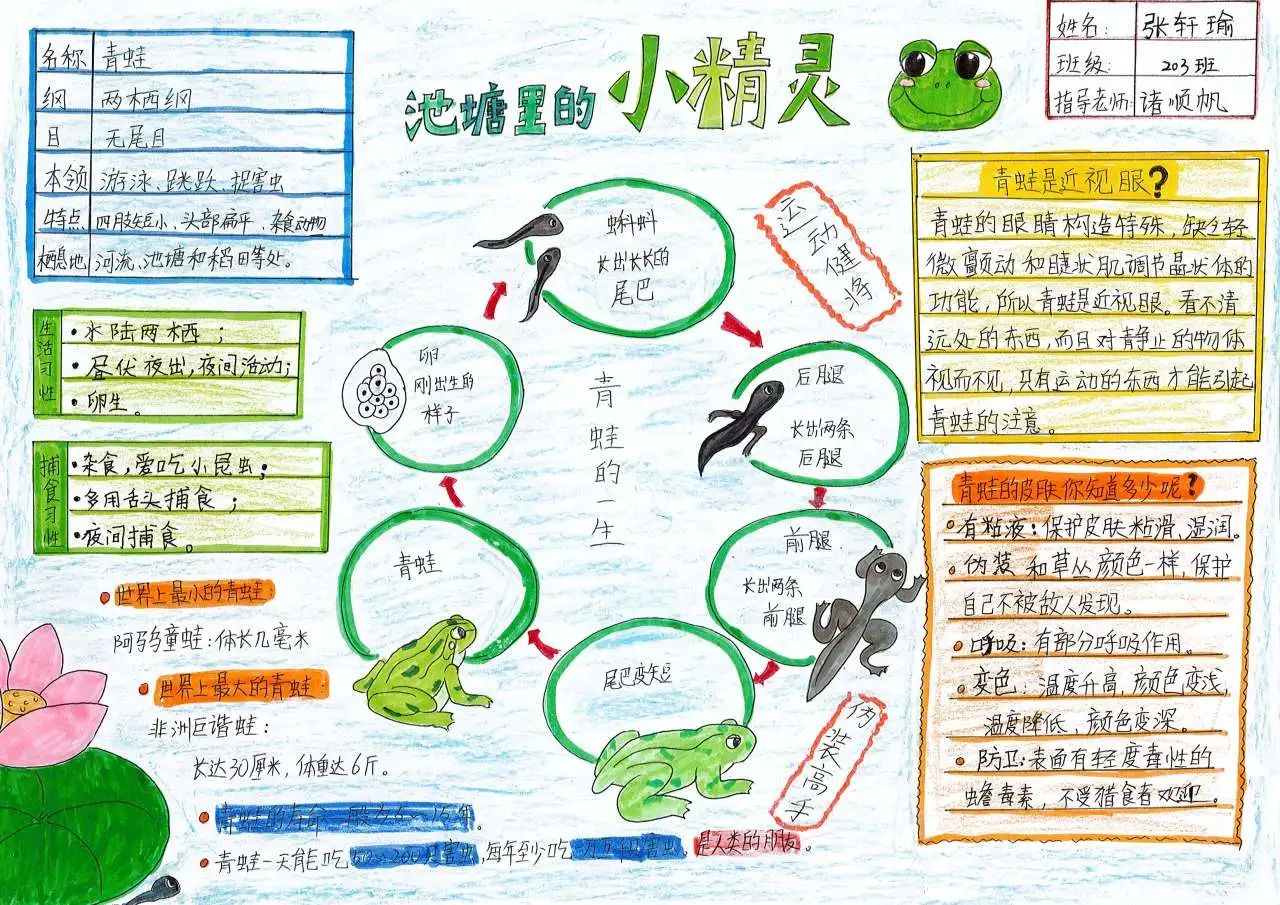 池塘里的小精灵
姓名: 张轩瑜
班级: 203班
指导老师: 诸顺帆
名称 青蛙
纲 两栖纲
目 无尾目
本领 游泳、跳跃、捉害虫
特点 四肢短小、头部扁平、杂食动物
栖息地 河流、池塘和稻田等处。
生活习性
·水陆两栖；
·昼伏夜出,夜间活动；
·卵生。
捕食习性
·杂食,爱吃小昆虫；
·多用舌头捕食；
·夜间捕食。
青蛙的一生
卵
刚出生的
样子
蝌蚪
长出长长的
尾巴
后腿
长出两条
后腿
前腿
长出两条
前腿
尾巴变短
青蛙
运动健将
伪装高手
青蛙是近视眼?
青蛙的眼睛构造特殊,缺乏轻
微颤动和睫状肌调节晶状体的
功能,所以青蛙是近视眼。看不清
远处的东西,而且对静止的物体
视而不见,只有运动的东西才能引起
青蛙的注意。
青蛙的皮肤你知道多少呢?
·有粘液:保护皮肤粘滑、湿润。
·伪装 和草丛颜色一样,保护
自己不被敌人发现。
·呼吸:有部分呼吸作用。
·变色:温度升高,颜色变浅,
温度降低,颜色变深。
·防卫:表面有轻度毒性的
蟾毒素,不受猎食者欢迎。
·世界上最小的青蛙:
阿马乌童蛙:体长几毫米
·世界上最大的青蛙:
非洲巨谐蛙:
长达30厘米,体重达6斤。
·青蛙的寿命一般为5~15年。
·青蛙一天能吃 200只害虫,每年至少吃 害虫。是人类的朋友。